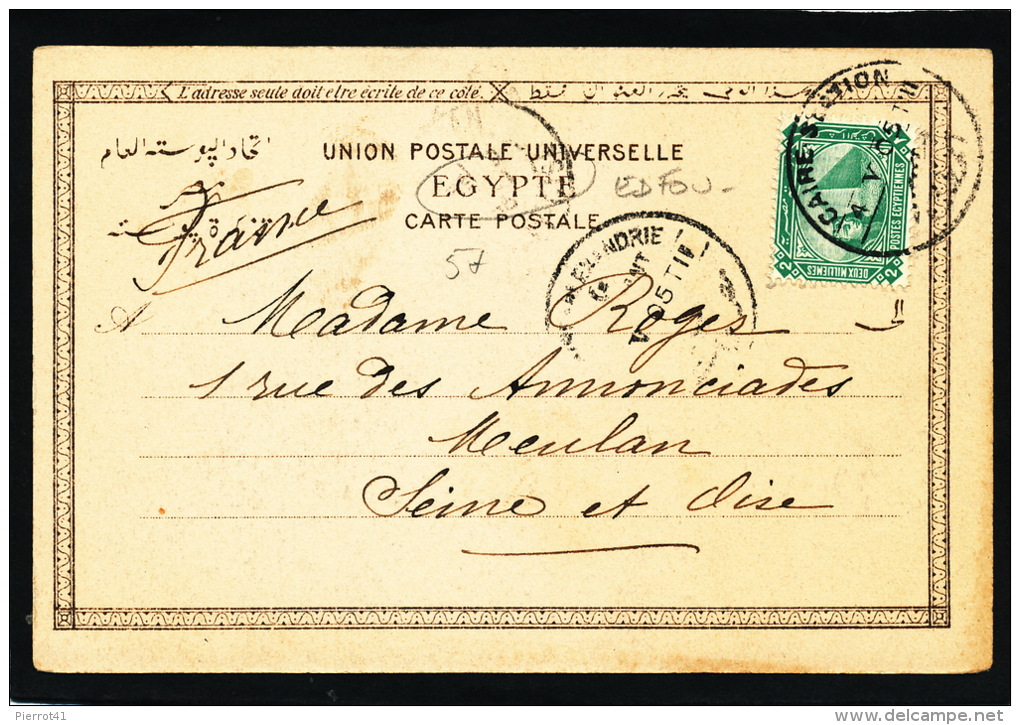 L'adresse seule doit etre écrite de ce côté.
اتحاد البوسته العام
UNION POSTALE UNIVERSELLE
EGYPTE
EDFOU -
CARTE POSTALE
France
57
CAIRE STATION
POSTES EGYPTIENNES
DEUX MILLIEMES
2 2
ALEXANDRIE
A Madame Roges
1 rue des Annonciades
Meulan
Seine et Oise
Pierrot41
delcampe.net